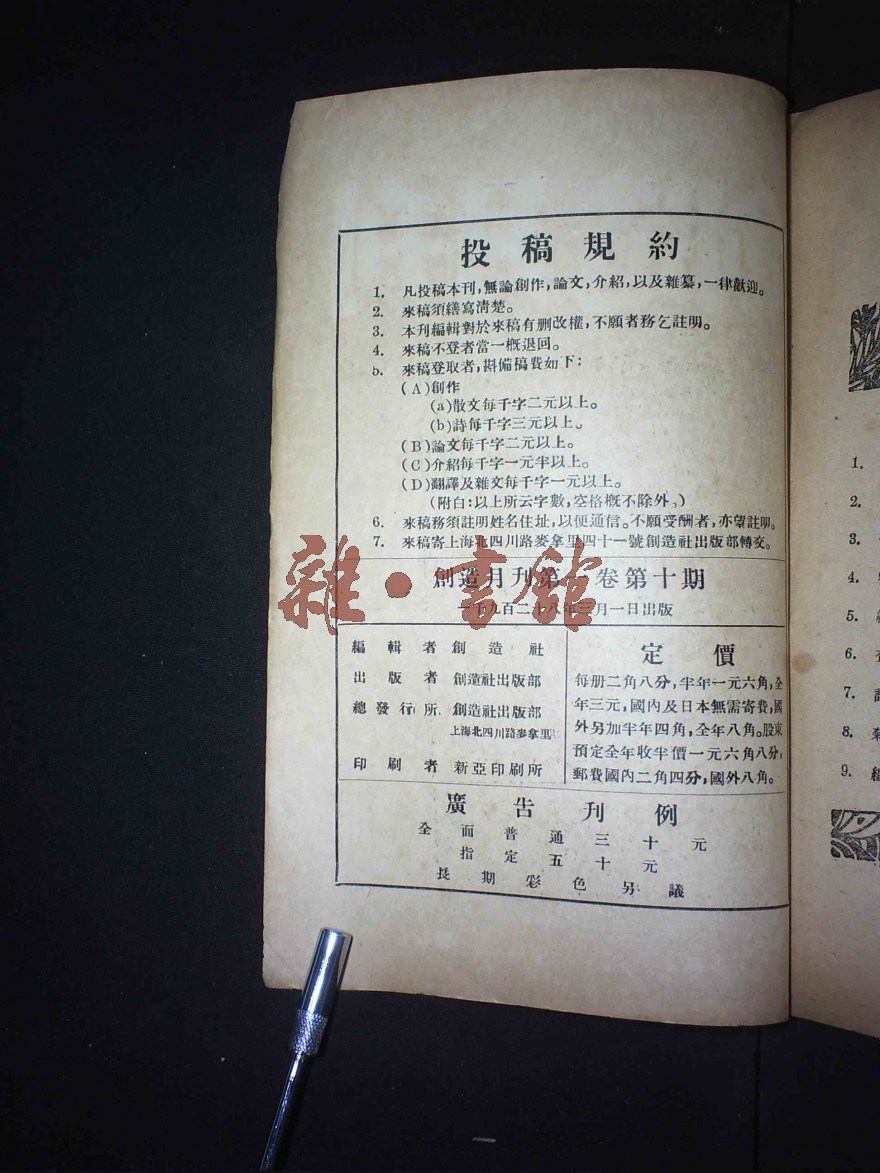 投稿規約
1. 凡投稿本刊,無論創作,論文,介紹,以及雜纂,一律歡迎。
2. 來稿須繕寫淸楚。
3. 本刊編輯對於來稿有删改權,不願者務乞註明。
4. 來稿不登者當一槪退回。
5. 來稿登取者,斟備稿費如下:
(A)創作
(a)散文每千字二元以上。
(b)詩每千字三元以上。
(B)論文每千字二元以上。
(C)介紹每千字一元半以上。
(D)翻譯及雜文每千字一元以上。
(附白:以上所云字數,空格槪不除外。)
6. 來稿務須註明姓名住址,以便通信。不願受酬者,亦望註明。
7. 來稿寄上海北四川路麥拿里四十一號創造社出版部轉交。
雜·書館
創造月刊第一卷第十期
一千九百二十八年三月一日出版
編輯者 創造社
出版者 創造社出版部
總發行所 創造社出版部
上海北四川路麥拿里
印刷者 新亞印刷所
定價
每册二角八分,半年一元六角,全
年三元,國內及日本無需寄費,國
外另加半年四角,全年八角。股東
預定全年收半價一元六角八分,
郵費國內二角四分,國外八角。
廣告刊例
全面普通三十元
指定五十元
長期彩色另議
1.
2.
3.
4.
5.
6.
7.
8.
9.